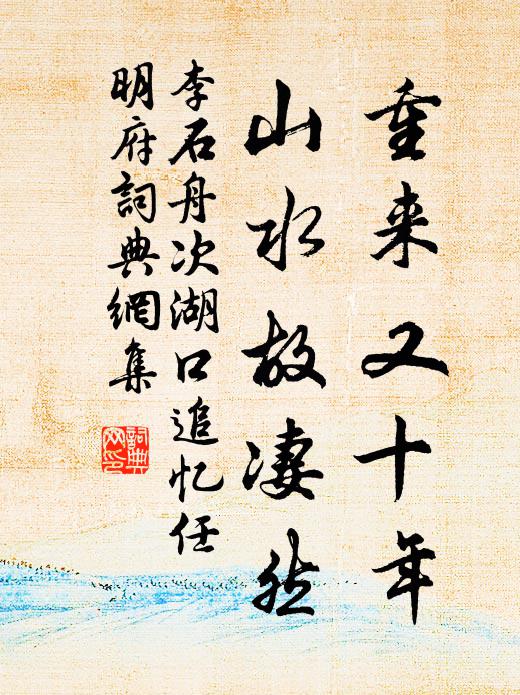 重来又十年
山水故凄然
李石舟次湖口追忆任
明府詞典網集
詞典網印